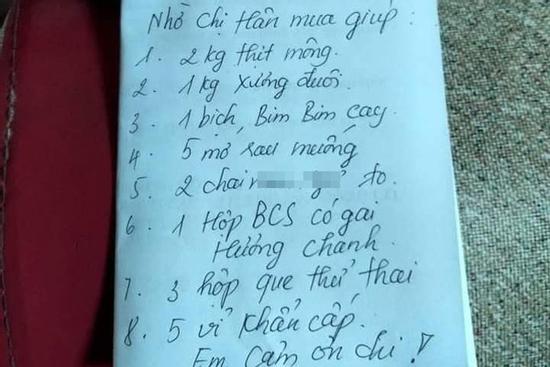 Nhờ chị Hân mua giúp :
1. 2 kg thịt mông.
2. 1 kg xương đuôi.
3. 1 bịch, Bim Bim cay
4. 5 mớ rau muống
5. 2 chai to.
6. 1 Hộp BCS có gai
Hương chanh.
7. 3 hộp que thử thai
8. 5 vỉ khẩn cấp.
Em cảm ơn chị !